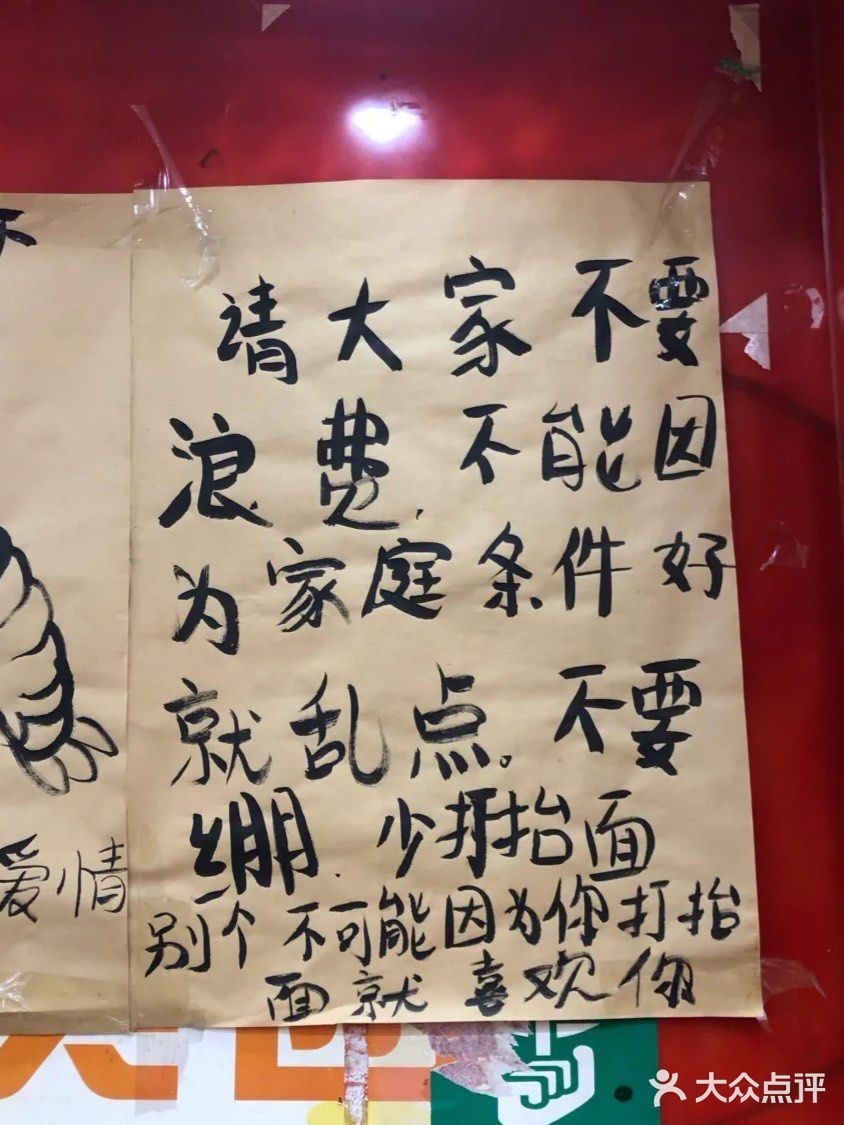 不
请大家不要
浪费,不能因
为家庭条件好
就乱点。不要
绷.少打抬面
爱情
别个不可能因为你打抬
面就喜欢你
大众点评